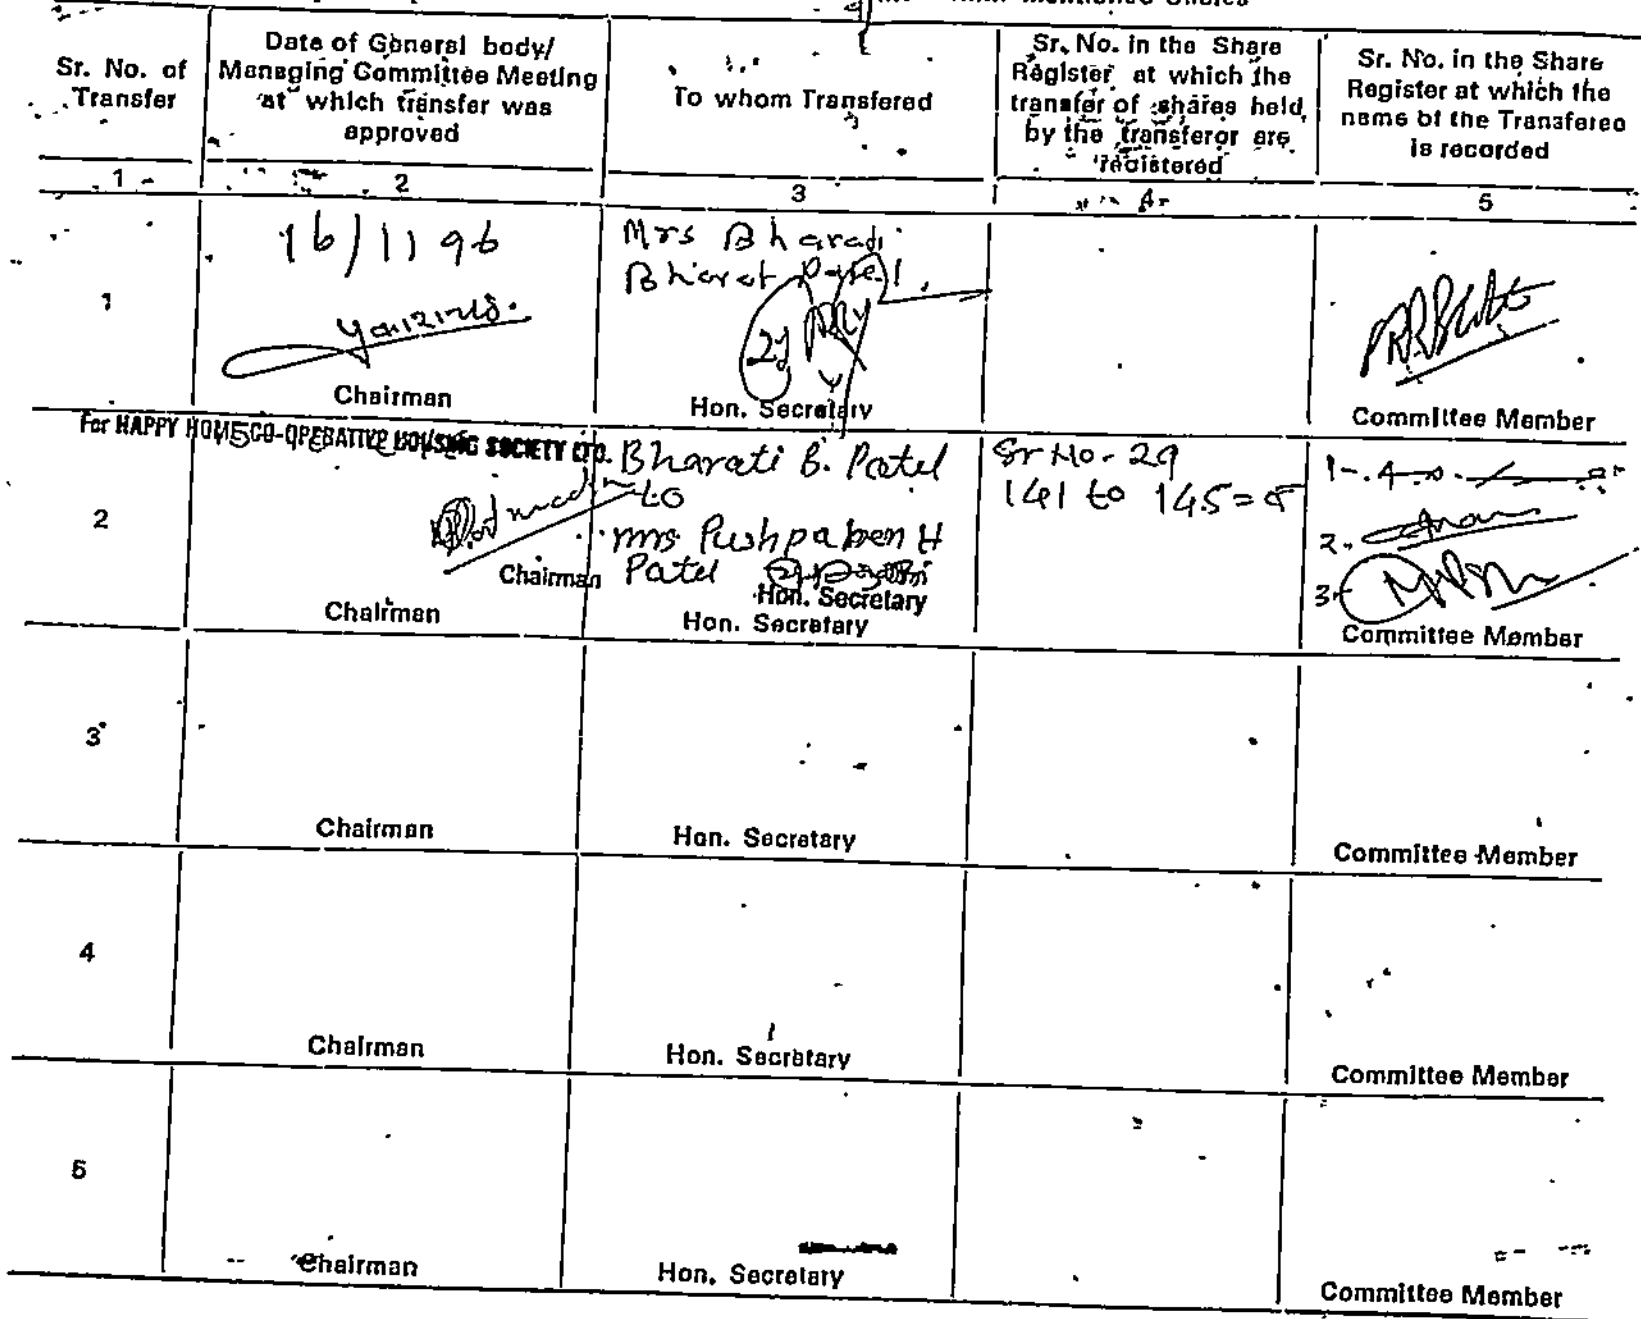 Sr. No. of
Transfer
Date of General body/
Managing Committee Meeting
at which transfer was
approved
To whom Transfered
Sr. No. in the Share
Register at which the
transfer of shares held
by the transferor are
registered
Sr. No. in the Share
Register at which the
name of the Transferee
is recorded
1
2
3
4
5
1
16/11 96
Chairman
Mrs Bharati
Bharat Patel
Hon. Secretary
Committee Member
For HAPPY HOME CO-OPERATIVE HOUSING SOCIETY LTD.
2
Chairman
Chairman
Bharati B. Patel
to
mrs Pushpaben H
Patel
Hon. Secretary
Hon. Secretary
Sr No. 29
141 to 145 = 5
1-
2.
3-
Committee Member
3
Chairman
Hon. Secretary
Committee Member
4
Chairman
Hon. Secretary
Committee Member
5
Chairman
Hon. Secretary
Committee Member